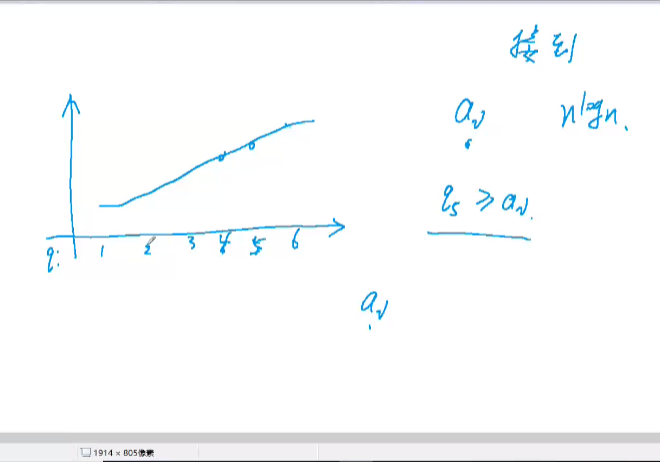 接到
aᵢ n log n.
q₅ ≥ aᵢ.
qᵢ 1 2 3 4 5 6
aᵢ
1914 × 805像素